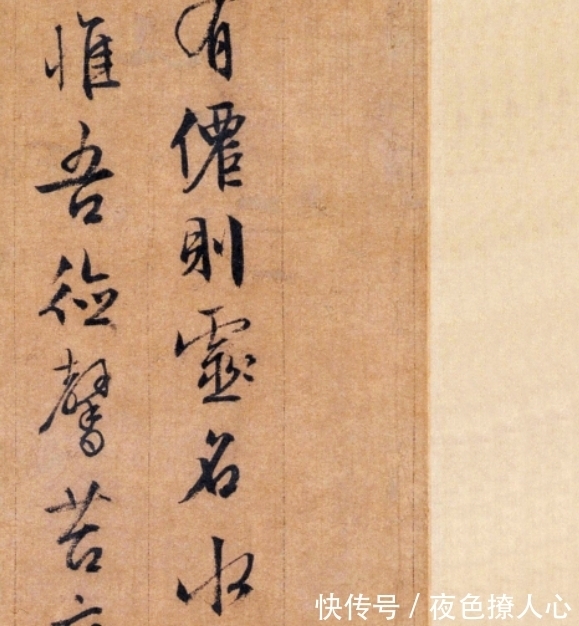 有僊則靈名水
惟吾德馨苔
快传号 / 夜色撩人心